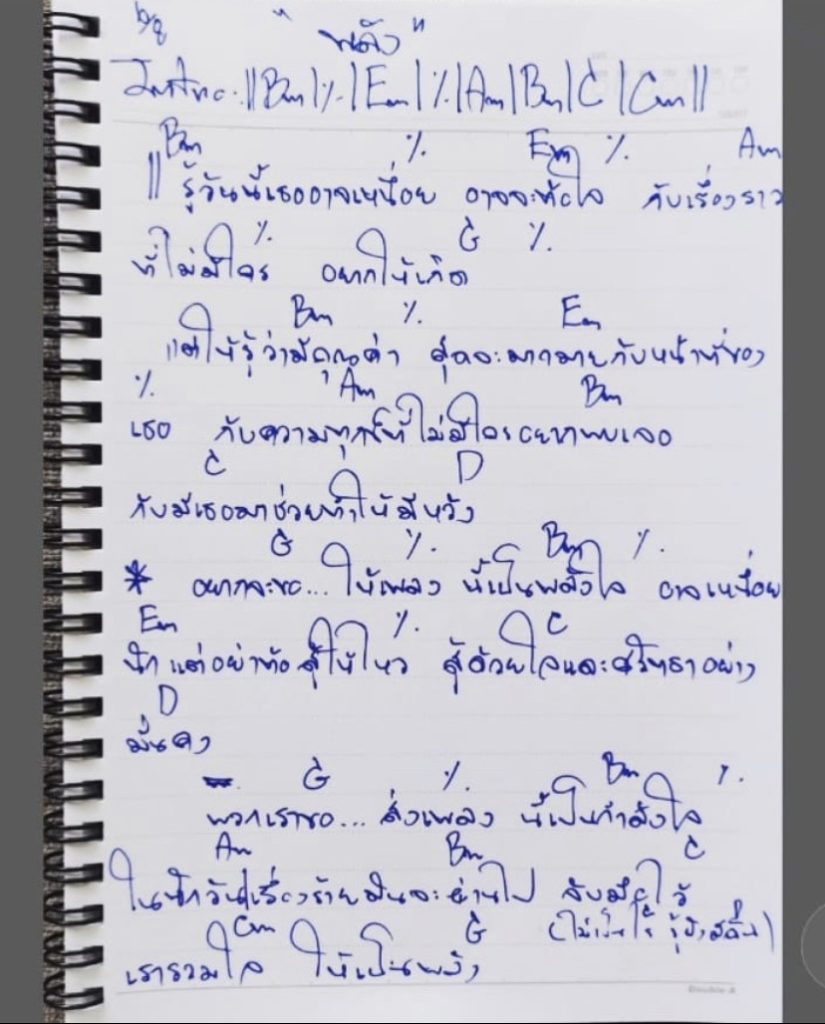 6/8 "พลัง"
Intro. || Bm | ٪. | Em | ٪. | Am | Bm | C | Cm ||
Bm ٪. Em ٪. Am
|| รู้วันนี้เธออาจเหนื่อย อาจจะท้อใจ กับเรื่องราว
٪. G ٪.
ที่ไม่มีใคร อยากให้เกิด
Bm ٪. Em
แต่ให้รู้ว่ามีคุณค่า สุดจะมากมายกับหน้าที่ของ
٪. Am Bm
เธอ กับความทุกข์ที่ไม่มีใครอยากพบเจอ
C D
กับมีเธอมาช่วยทำให้มีหวัง
G ٪. Bm ٪.
* อยากจะขอ... ให้เพลง นี้เป็นพลังใจ อาจเหนื่อย
Em ٪. C
นัก แต่อย่าท้อ สู้ให้ไหว สู้ด้วยใจและศรัทธาอย่าง
D
มั่นคง
G ٪. Bm ٪.
พวกเราขอ... ส่งเพลง นี้เป็นกำลังใจ
Am Bm C
ในอีกวันเรื่องร้ายมันจะผ่านไป จับมือไว้
Cm G (ไม่เป็นไร
เรารวมใจ ให้เป็นพลัง